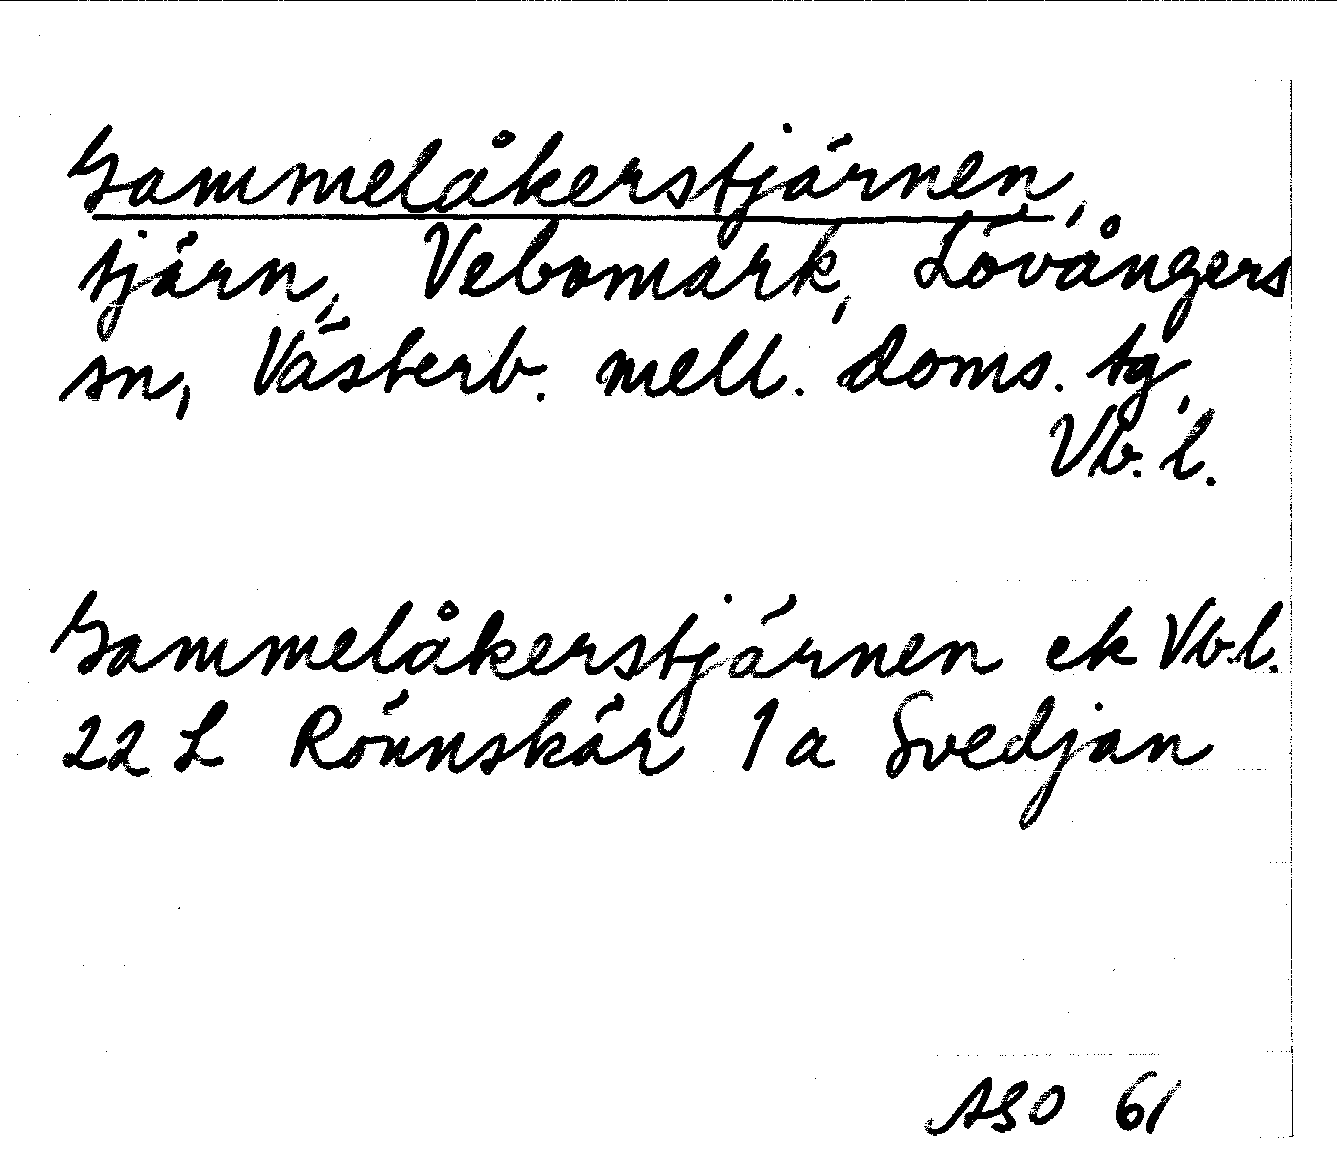 Gammelåkerstjärnen,
tjärn, Vebomark, Lövångers
sn, Västerb. mell. doms. tg,
Vb. l.
Gammelåkerstjärnen ek Vb.l.
22 L Rönnskär 1 a Svedjan
ASO 61